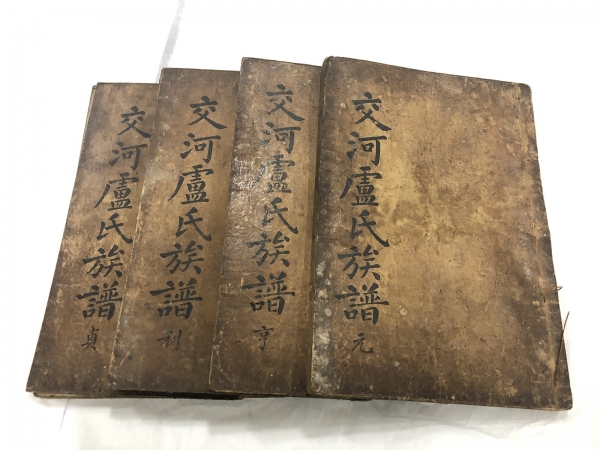 交河盧氏族譜 元
交河盧氏族譜 亨
交河盧氏族譜 利
交河盧氏族譜 貞